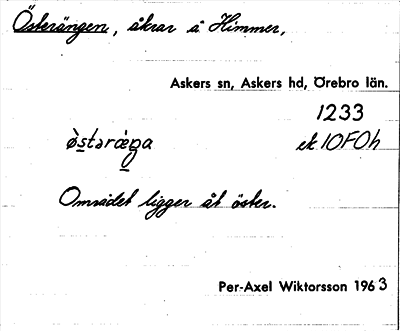 Österängen, åkrar å Himmer,
Askers sn, Askers hd, Örebro län.
1233
ö̀stəræ̀ŋa ek 10F0h
Området ligger åt öster.
Per-Axel Wiktorsson 1963